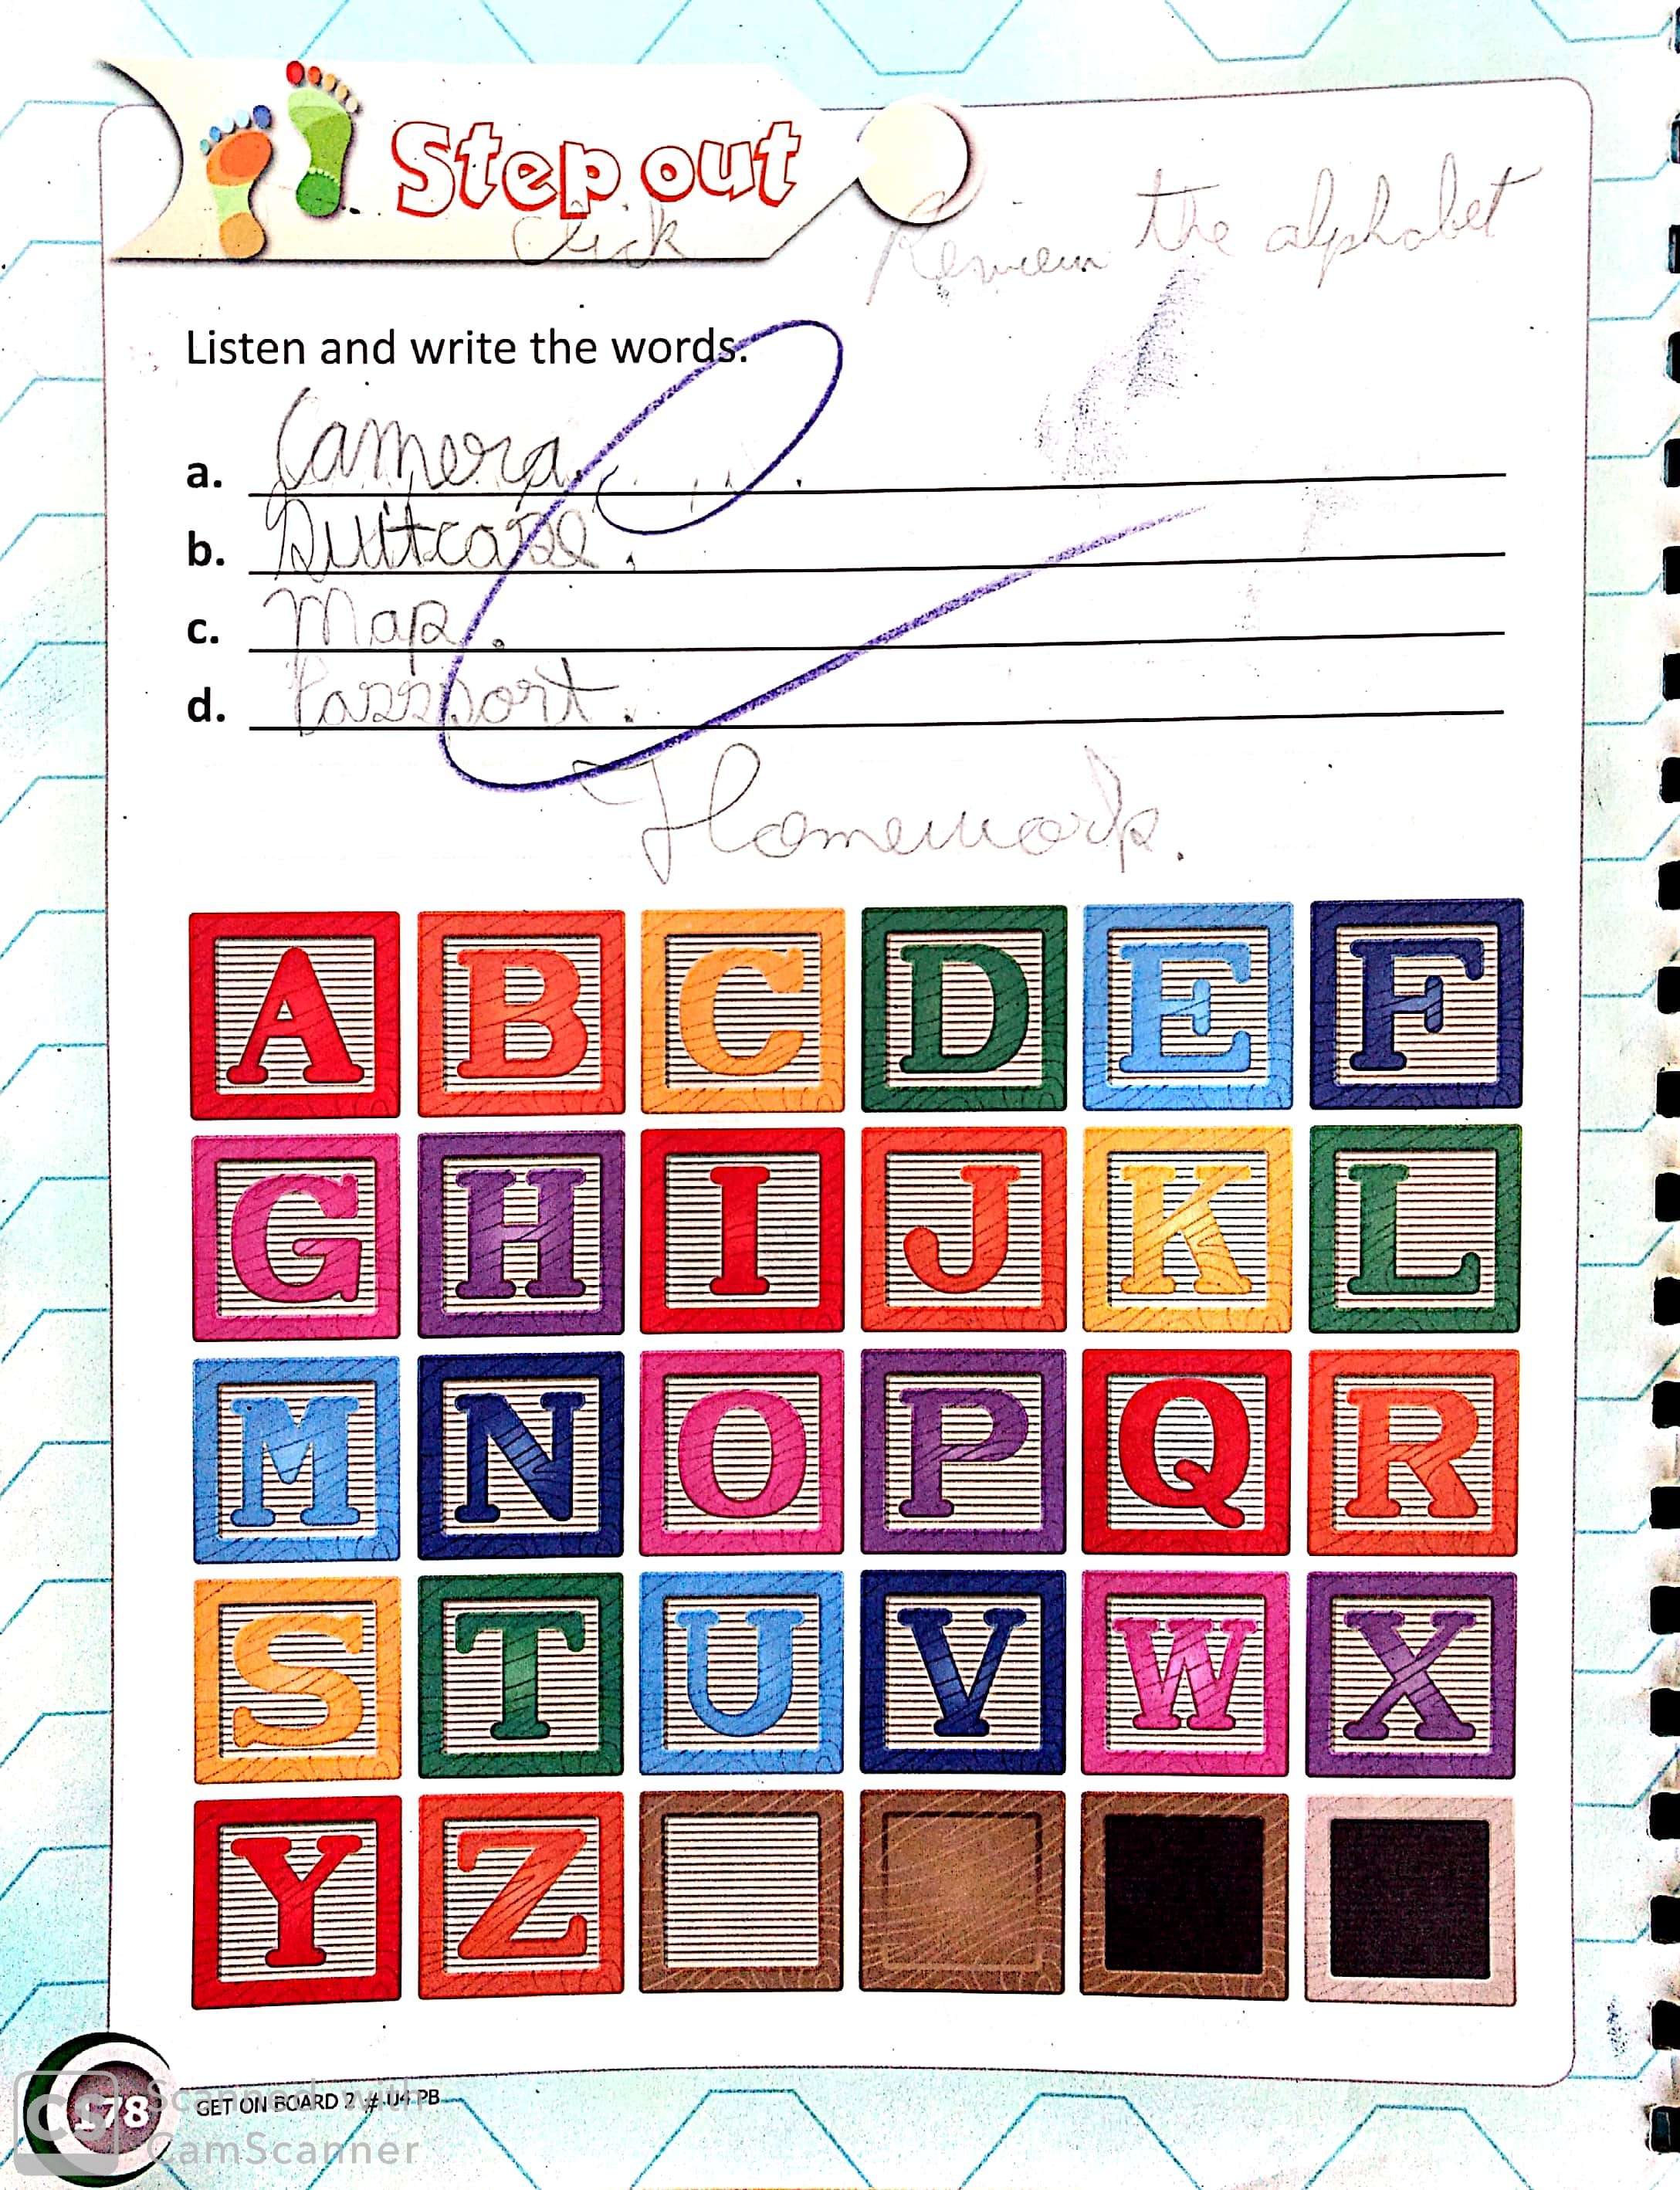 Step out
Click
Review the alphabet
Listen and write the words.
a. Camera.
b. Suitcase.
c. Map.
d. Passport.
Homework.
A B C D E F
G H I J K L
M N O P Q R
S T U V W X
Y Z
178 GET ON BOARD 2 # U4 PB
CS Scanned with
CamScanner